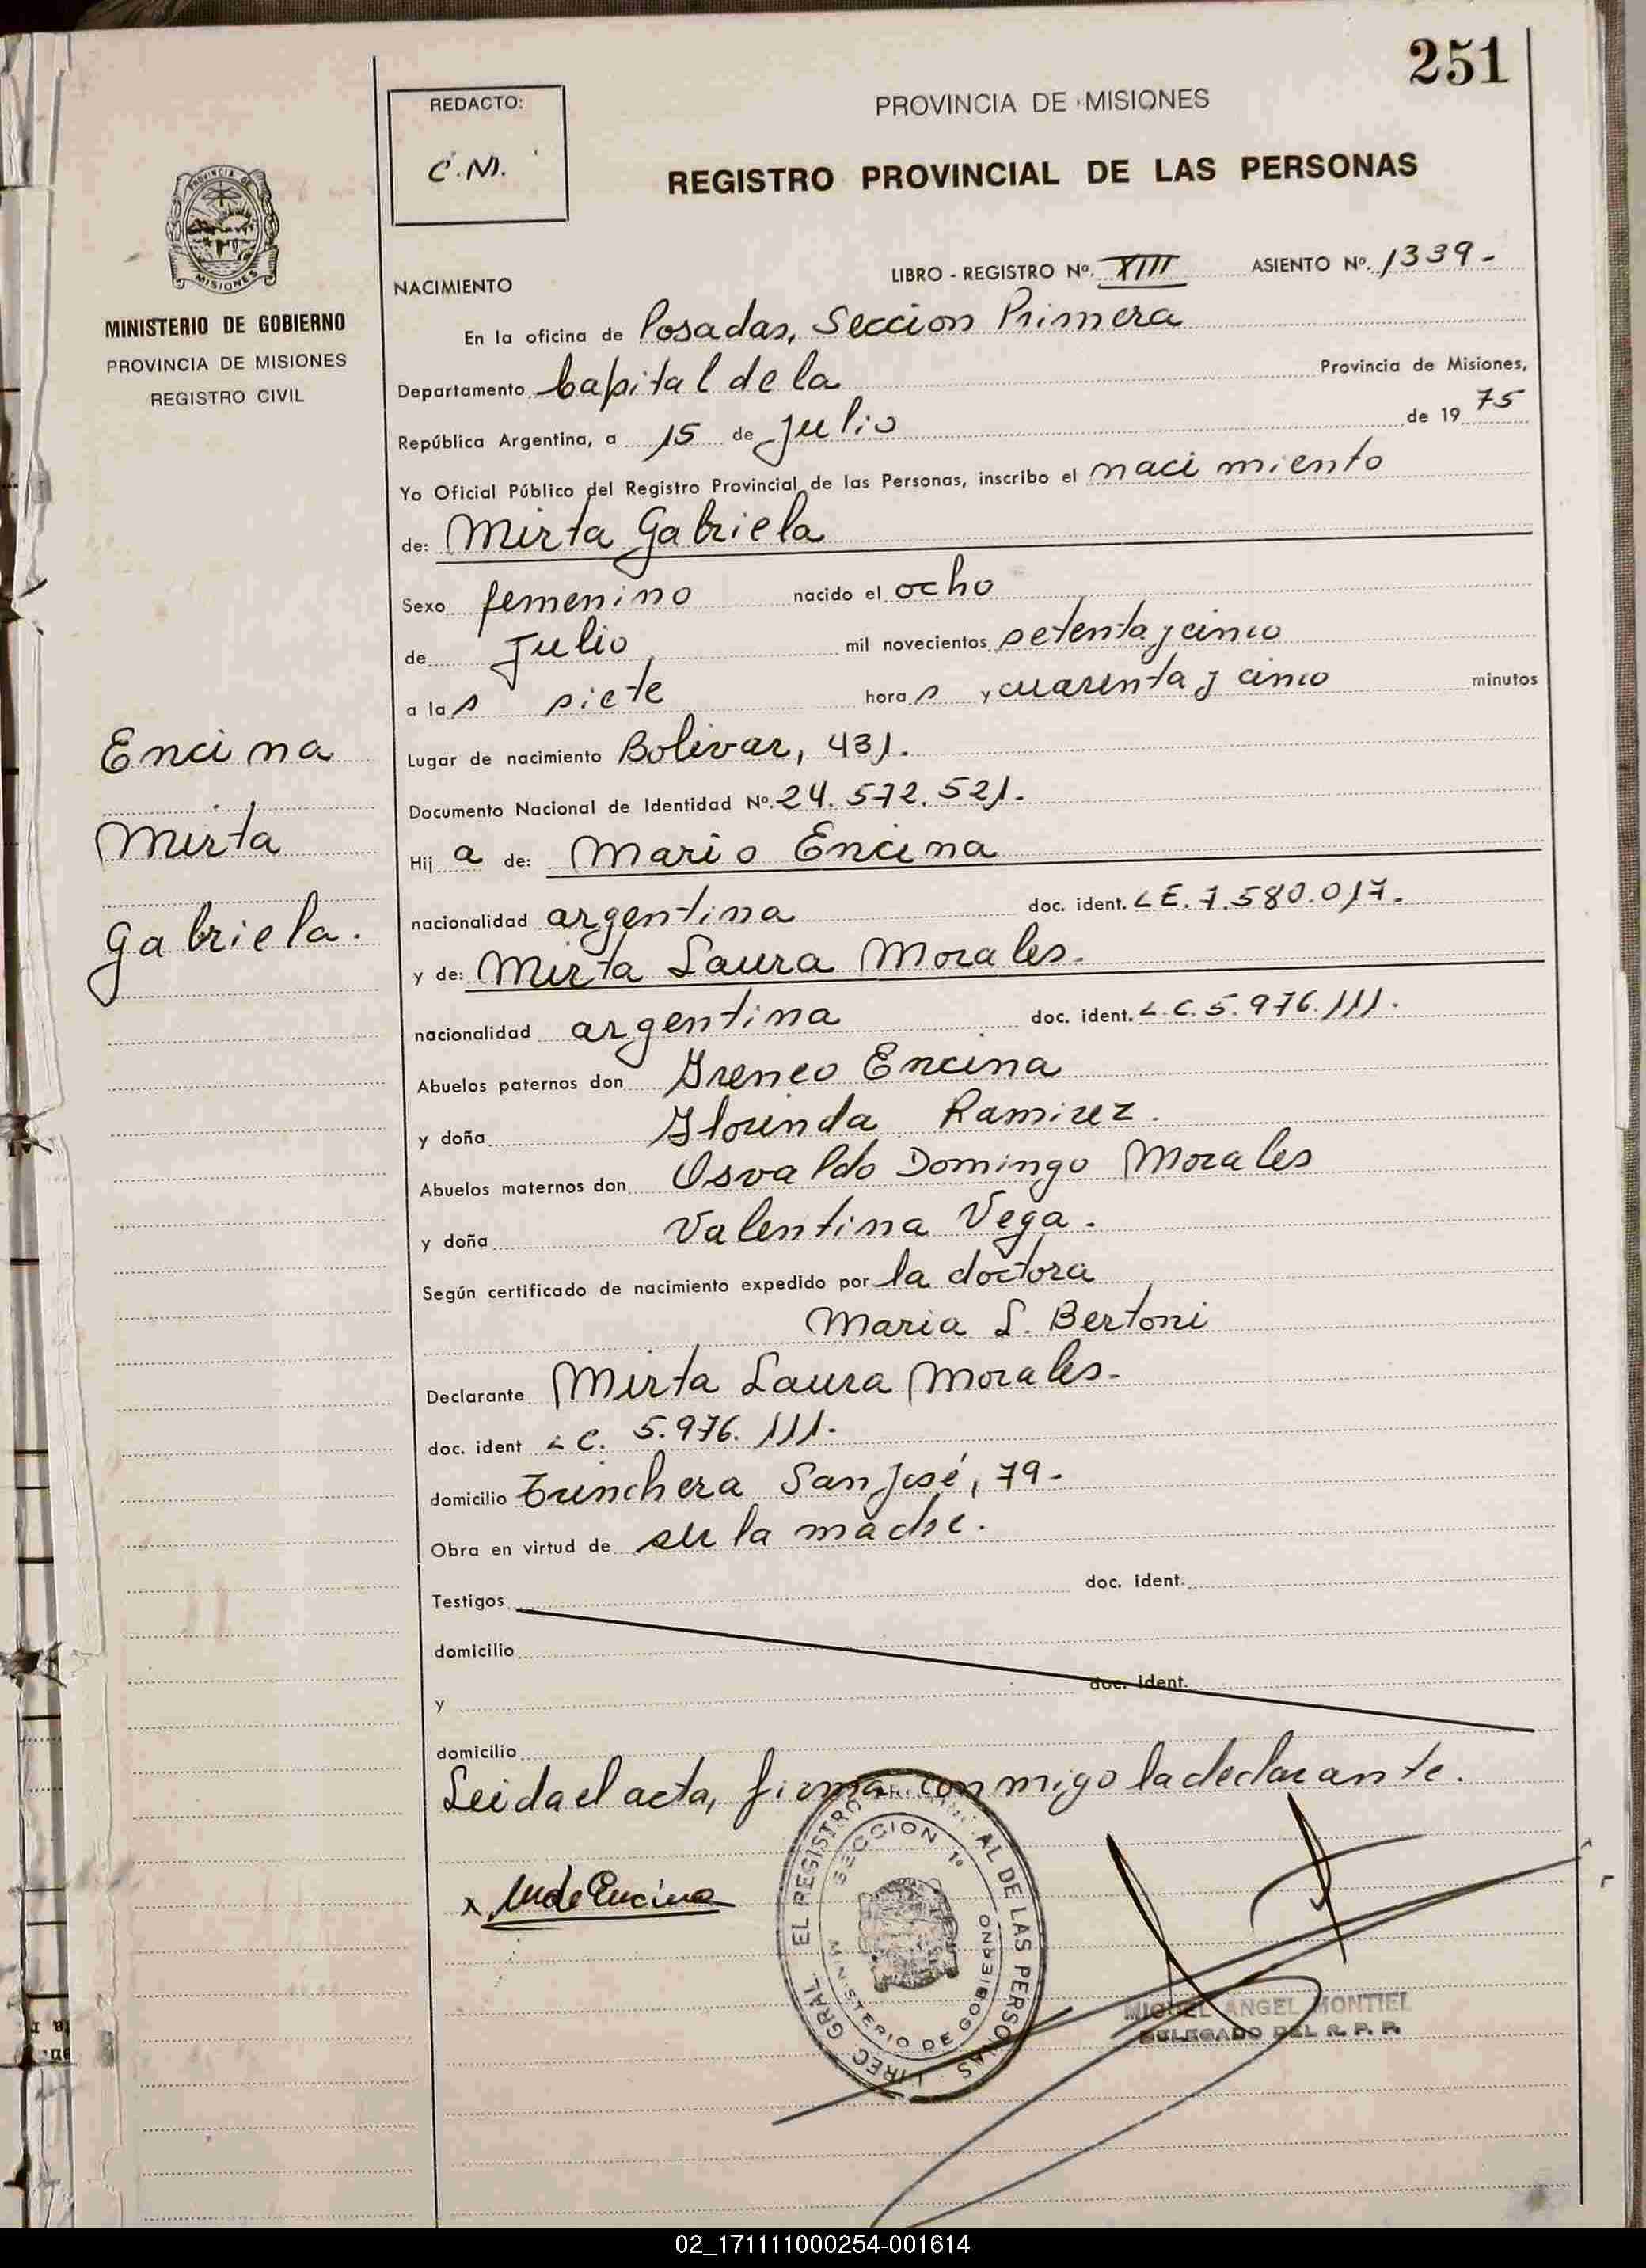 251
REDACTO:
C.M.
PROVINCIA DE MISIONES
REGISTRO PROVINCIAL DE LAS PERSONAS
MINISTERIO DE GOBIERNO
PROVINCIA DE MISIONES
REGISTRO CIVIL
NACIMIENTO
LIBRO - REGISTRO Nº. XIII ASIENTO Nº. 1339-
En la oficina de Posadas, Seccion Primera
Departamento Capital de la Provincia de Misiones,
República Argentina, a 15 de Julio de 1975
Yo Oficial Público del Registro Provincial de las Personas, inscribo el nacimiento
de: Mirta Gabriela
Sexo femenino nacido el ocho
de Julio mil novecientos setenta y cinco
a las siete horas y cuarenta y cinco minutos
Encina
Mirta
Gabriela.
Lugar de nacimiento Bolivar, 431.
Documento Nacional de Identidad Nº. 24.572.521.
Hija de: Mario Encina
nacionalidad argentina doc. ident. LE. 7.580.017.
y de: Mirta Laura Morales.
nacionalidad argentina doc. ident. L.C. 5.976.111.
Abuelos paternos don Ireneo Encina
y doña Florinda Ramirez.
Abuelos maternos don Osvaldo Domingo Morales
y doña Valentina Vega.
Según certificado de nacimiento expedido por la doctora
Maria L. Bertoni
Declarante Mirta Laura Morales-
doc. ident L C. 5.976.111.
domicilio Trinchera San José, 79-
Obra en virtud de ser la madre.
Testigos doc. ident.
domicilio
y doc. ident.
domicilio
Leida el acta, firma conmigo la declarante.
x M de Encina
DIREC. GRAL. EL REGISTRO AL DE LAS PERSONAS
SECCION 1º
MINISTERIO DE GOBIERNO
MIGUEL ANGEL MONTIEL
DELEGADO DEL R. P. P.
02_171111000254-001614